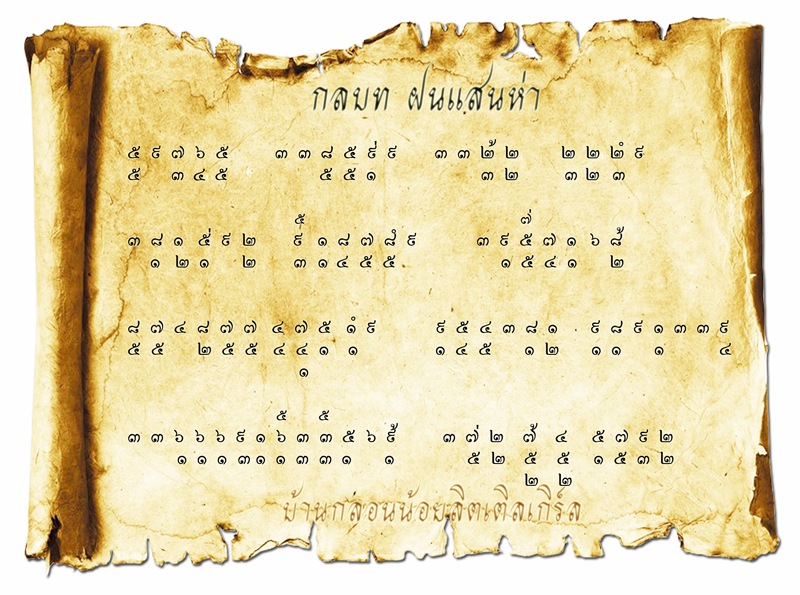 กลบท ฝนแสนห่า
๕ ๙ ๗ ๖ ๕ ๓ ๓ ๘ ๕ ๙่ ๙ ๓ ๓ ๒้ ๒ ๒ ๒ ๒ํ ๙
๕ ๓ ๔ ๕ ๕ ๕ ๑ ๓ ๒ ๓ ๒ ๓
๕ ๗่
๓ ๘ ๑ ๕่ ๙ ๒ ๙ ๑ ๘ ๗ ๘ํ ๙ ๓ ๙ ๕ ๗ ๑ ๖ ๘้
๑ ๒ ๑ ๒ ๓ ๑ ๔ ๕ ๕ ๑ ๕ ๔ ๑ ๒
๘ ๗ ๔ ๘ ๗ ๗ ๔ ๗ ๕ ๑ํ ๙ ๙ ๕ ๔ ๓ ๘ ๑ ๙ ๘ ๙ ๑ ๓ ๓ ๙
๕ ๕ ๒ ๕ ๕ ๔ ๔ ๑ ๑ ๑ ๔ ๕ ๑ ๒ ๑ ๑ ๑ ๔
๑
๕ ๕
๓ ๓ ๖ ๖ ๖ ๙ ๑ ๖ ๓ ๓ ๕ ๖ ๙้ ๓ ๗่ ๒ ๗้ ๔ ๕ ๗ ๙ ๒
๑ ๑ ๑ ๓ ๑ ๑ ๓ ๓ ๑ ๑ ๑ ๕ ๒ ๕ ๕ ๑ ๕ ๓ ๒
๒ ๒
บ้านกลอนน้อยลิตเติลเกิร์ล